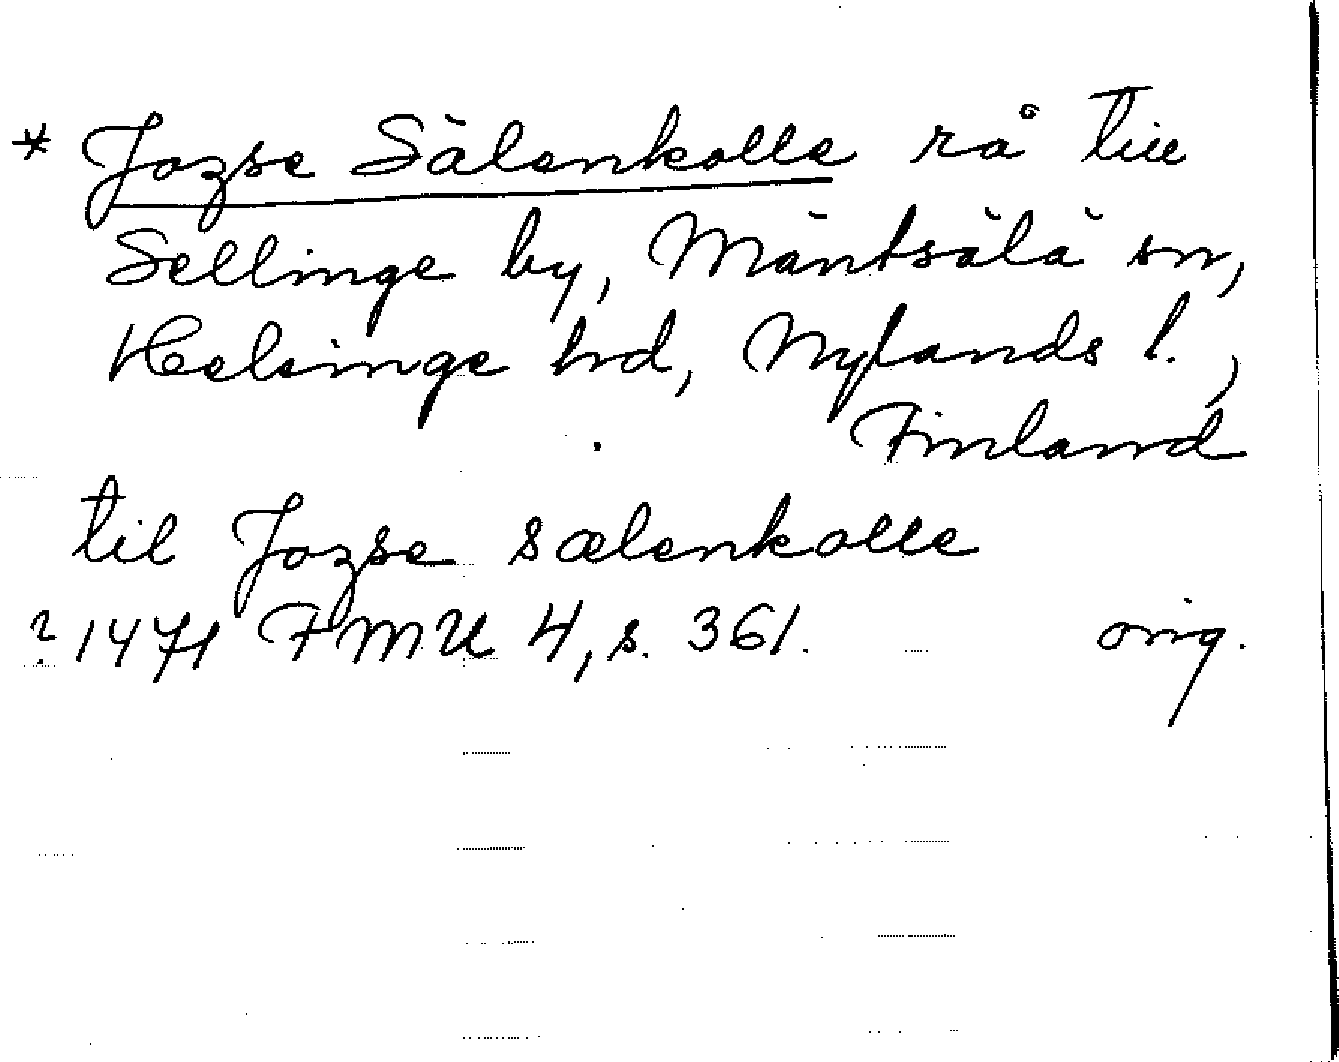 * Jozse Sälenkolle rå till
Sellinge by, Mäntsälä sn,
Helsinge hd, Nylands l.,
Finland
til Jozse sælenkolle
? 1471 FMU 4, s. 361. orig.